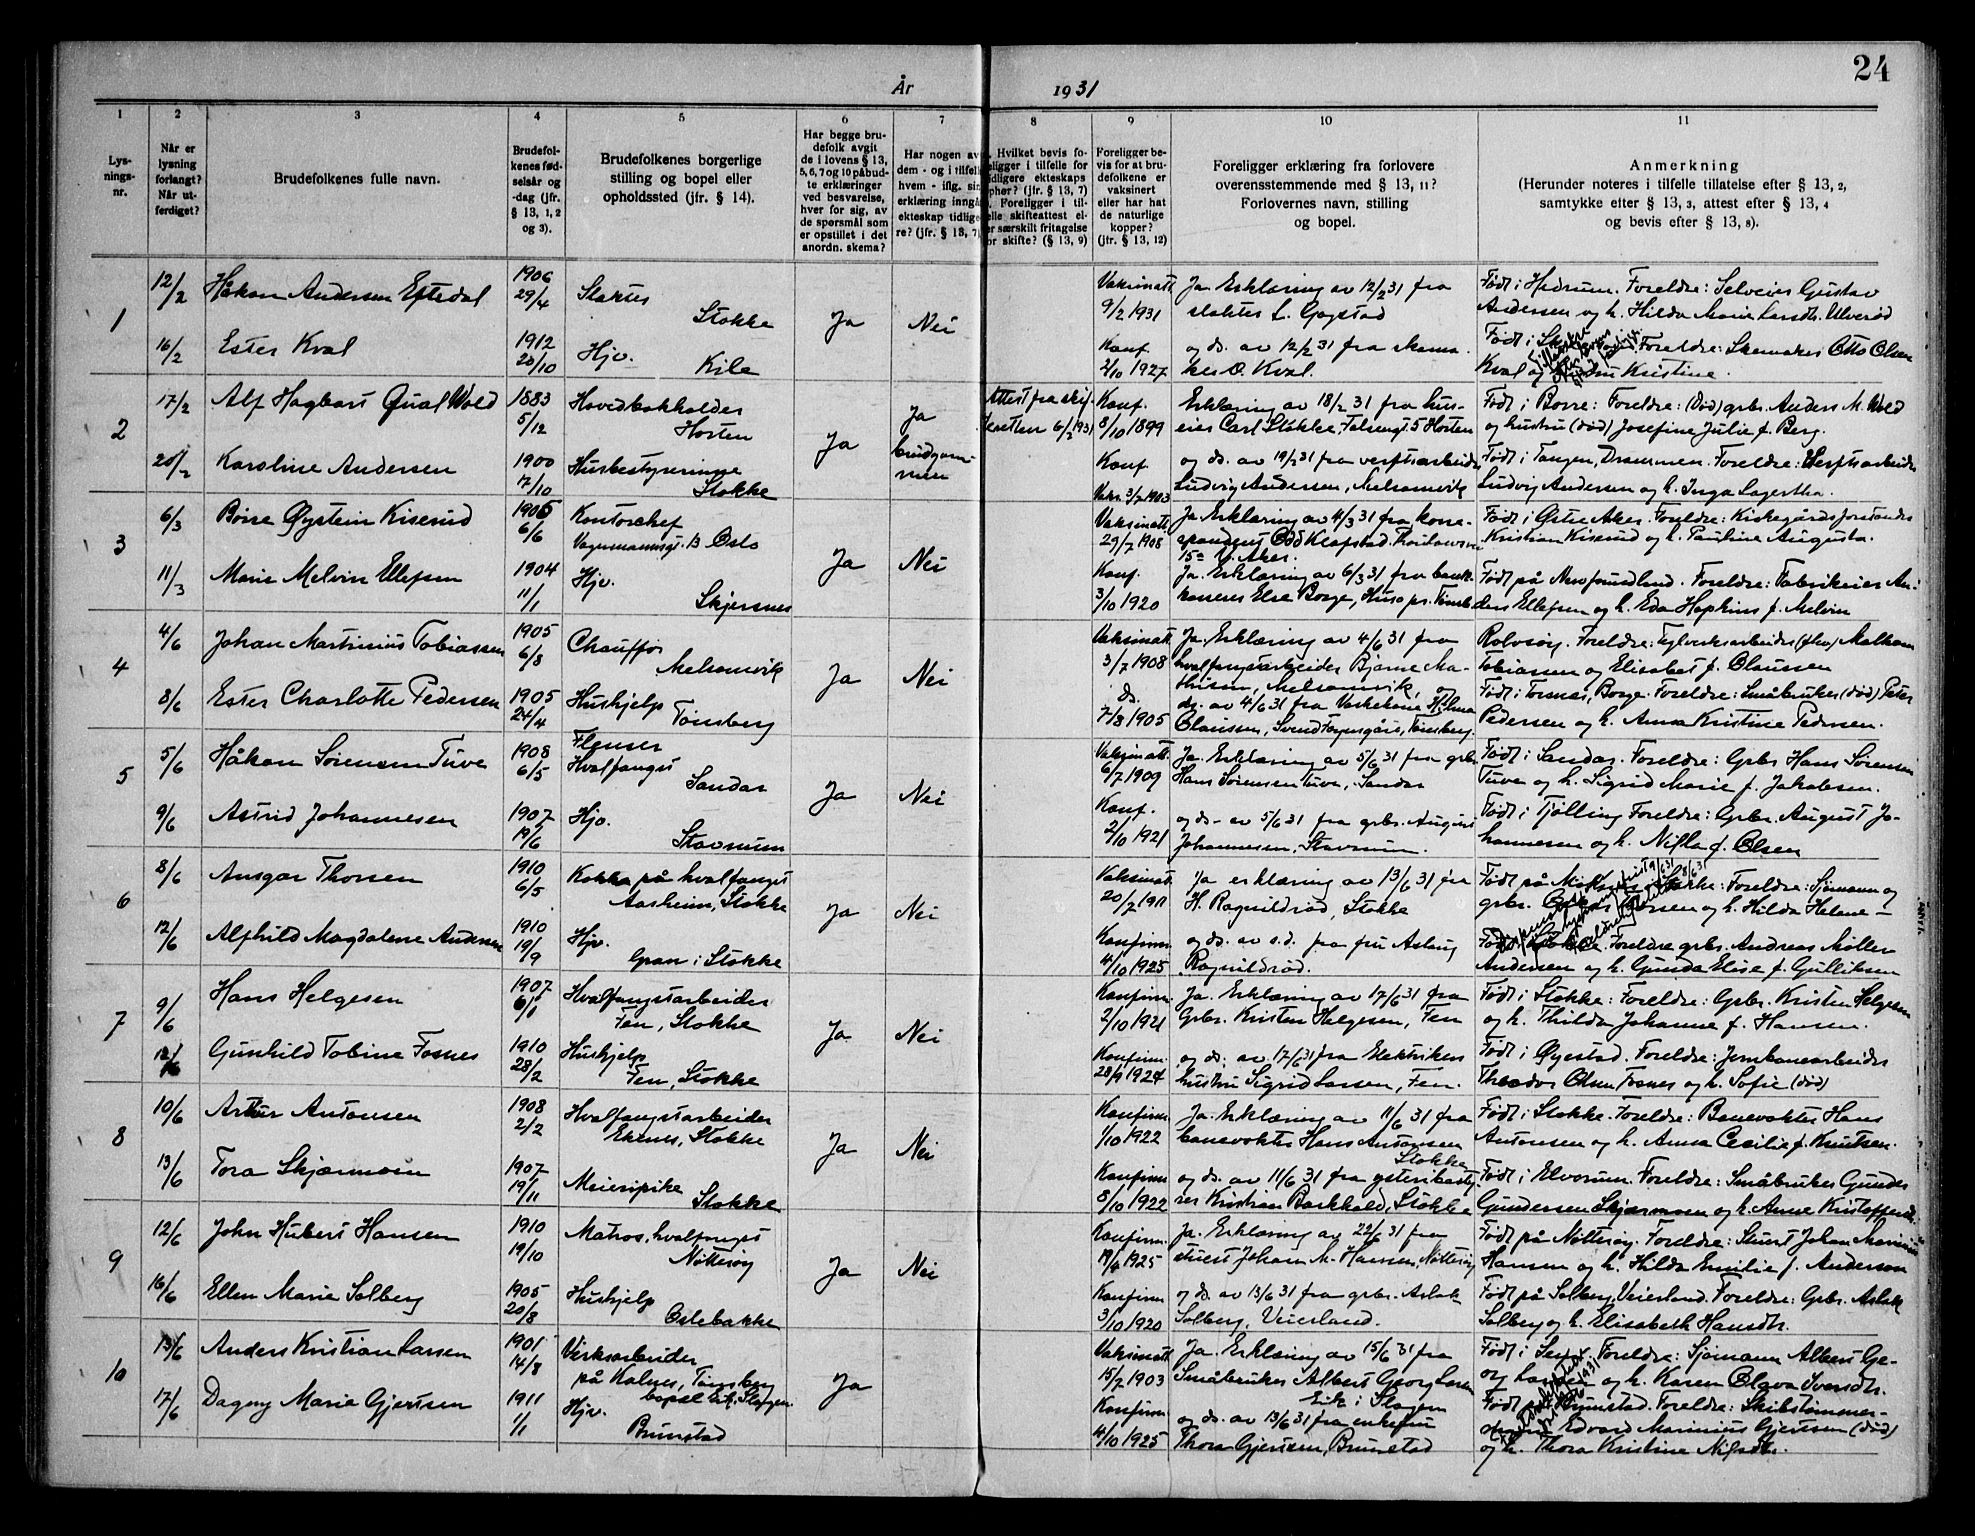 24
År 1931
1
2
3
4
5
6
7
8
9
10
11
Lys-
nings-
nr.
Når er
lysning
forlangt?
Når ut-
ferdiget?
Brudefolkenes fulle navn.
Brudefol-
kenes fød-
selsår og
-dag (jfr.
§ 13, 1, 2
og 3).
Brudefolkenes borgerlige
stilling og bopel eller
opholdssted (jfr. § 14).
Har begge bru-
defolk avgit
de i lovens § 13,
5, 6, 7 og 10 påbud-
te erklæringer
ved besvarelse,
hver for sig, av
de spørsmål som
er opstillet i det
anordn. skema?
Har nogen av
dem - og i tilfelle
hvem - iflg. sin
erklæring inngå
ekteskap tidlige
re? (jfr. § 13, 7)
Hvilket bevis fo-
religger i tilfelle for
tidligere ekteskaps
ophør? (jfr. § 13, 7)
Foreligger i til-
felle skifteattest el-
er særskilt fritagelse
for skifte? (§ 13, 9)
Foreligger be-
vis for at bru-
defolkene er
vaksinert
eller har hat
de naturlige
kopper?
(jfr. § 13, 12)
Foreligger erklæring fra forlovere
overensstemmende med § 13, 11?
Forlovernes navn, stilling
og bopel.
Anmerkning
(Herunder noteres i tilfelle tillatelse efter § 13, 2,
samtykke efter § 13, 3, attest efter § 13, 4
og bevis efter § 13, 8).
1
12/2 Håkon Andersen Eftedal 1906 29/4 Stokke
Ja Nei
Vaksinatt. 9/2 1931
Ja. Erklæring av 12/2 31 fra
slakter L. Gogstad
Født i Hedrum. Foreldre: Selveier Gustav
Andersen og h. Hilda Marie Larsdtr. Ulverød
16/2 Ester Kval 1912 20/10 Hjv. Kile
Konf. 2/10 1927
og ds. av 12/2 31 fra skoma-
ker O. Kval.
Foreldre: Skomaker Otto Olsen
Kval og Kristine.
2
17/2 Alf Hagbart Qual Wold 1883 5/12 Hovedbokholder
Horten
Ja Ja brudgom-
men
Attest fra skif-
teretten 6/2 1931
Konf. 8/10 1899
Erklæring av 18/2 31 fra hus-
eier Carl Stokke, Falsengt. 5 Horten
Født i Borre: Foreldre: (Død) grbr. Anders M. Wold
og hustru (død) Josefine Julie f. Berg.
20/2 Karoline Andersen 1900 17/10 Husbestyrerinne
Stokke
Konf.
Vaks. 3/7 1903
og ds. av 19/2 31 fra verftsarbeider
Ludvig Andersen, Melsomvik
Født i Tangen, Drammen. Foreldre: Verftsarbeider
Ludvig Andersen og h. Inga Lagertha.
3
6/3 Børre Øystein Kiserud 1905 6/6 Kontorchef
Oslo
Ja Nei
Vaksinatt. 29/7 1908
Ja. Erklæring av 4/3 31 fra korre-
spondent Odd Klafstad
15 a V. Aker.
Født i Østre Aker. Foreldre: Kirkegårdsforstander
Kristian Kiserud og h. Pauline Augusta.
11/3 Marie Melvin Ellefsen 1904 11/1 Hjv.
Skjersnes
Konf. 3/10 1920
Ja. Erklæring av 6/3 31 fra bank-
kasserer Else Borge, Husø pr. Tønsb.
Født på Newfoundland. Foreldre: Fabrikeier An-
ders Ellefsen og h. Eda Hopkins f. Melvin
4
4/6 Johan Martinius Tobiassen 1905 6/8 Chauffør
Melsomvik
Ja Nei
Vaksinatt. 3/7 1908
Ja. Erklæring av 4/6 31 fra
hvalfangstarbeider Bjarne Ma-
thisen, Melsomvik, og
Rolvsøy. Foreldre: Teglverksarbeider Malkom
Tobiassen og Elisabet f. Claussen
8/6 Ester Charlotte Pedersen 1905 24/4 Hushjelp
Tønsberg
ds. 7/8 1905
ds. av 4/6 31 fra Vaskekone Hilma
Claussen, Svend Foynsgård, Tønsberg.
Født i Torsnes, Borge. Foreldre: Småbruker (død) Peter
Pedersen og h. Anna Kristine Pedersen.
5
5/6 Håkon Sørensen Tuve 1908 6/5 Flenser
Hvalfangst
Sandar
Ja Nei
Vaksinatt. 6/7 1909
Ja. Erklæring av 5/6 31 fra grbr.
Hans Sørensen Tuve, Sandar
Født i Sandar. Foreldre: Grbr. Hans Sørensen
Tuve og h. Sigrid Marie f. Jakobsen.
9/6 Astrid Johannesen 1907 19/6 Hjv.
Stavnum
Konf. 2/10 1921
og ds. av 5/6 31 fra grbr. August
Johannesen, Stavnum.
Født i Tjølling Foreldre: Grbr. August Jo-
hannesen og h. Nilla f. Olsen
6
8/6 Ansgar Thorsen 1910 6/5 Kokk på hvalfangst
Aasheim, Stokke
Ja Nei
Vaksinatt. 20/7 1911
Ja erklæring av 13/6 31 fra
H. Ragnildrød, Stokke
Født på Foreldre: Sjømann og
grbr. Thorsen og h. Hilda Helene –
12/6 Alfhild Magdalene Andersen 1910 19/9 Hjv.
Gran i Stokke
Konfirm. 4/10 1925
og ds. av s.d. fra fru Aslaug
Ragnildrød.
Født i Stokke. Foreldre grbr. Andreas Møller
Andersen og h. Gunda Elise f. Gulliksen
7
9/6 Hans Helgesen 1907 6/1 Hvalfangstarbeider
Fen, Stokke
Ja Nei
Konfirm. 2/10 1921
Ja. Erklæring av 17/6 31 fra
Grbr. Kristen Helgesen, Fen
Født i Stokke: Foreldre: Grbr. Kristen Helgesen
og h. Thilda Johanne f. Hansen.
12/6 Gunhild Tobine Fosnes 1910 28/2 Hushjelp
Fen, Stokke
Konfirm. 28/9 1924
og ds. av 17/6 31 fra Elektriker
hustru Sigrid Larsen, Fen.
Født i Øyestad. Foreldre: Jernbanearbeider
Theodor Olsen Fosnes og h. Sofie (død)
8
10/6 Artur Antonsen 1908 2/2 Hvalfangstarbeider
Ekenes, Stokke
Ja Nei
Konfirm. 1/10 1922
Ja. Erklæring av 11/6 31 fra
banevokter Hans Antonsen
Stokke
Født i Stokke. Foreldre: Banevokter Hans
Antonsen og h. Anna Cecilie f. Knutsen.
13/6 Tora Skjærmoen 1907 19/11 Meieripike
Stokke
Konfirm. 8/10 1922
og ds. av 11/6 31 fra ysteribesty-
rer Kristian Barkhald, Stokke
Født i Elverum. Foreldre: Småbruker Gunder
Gundersen Skjærmoen og h. Anne Kristoffersdtr.
9
12/6 John Hubert Hansen 1910 19/10 Matros, hvalfangst
Nøtterøy
Ja Nei
Konfirm. 19/4 1925
Ja. Erklæring av 22/6 31 fra
stuert Johan M. Hansen, Nøtterøy
Født på Nøtterøy. Foreldre: Stuert Johan Marinius
Hansen og h. Hilda Emilie f. Anderson
16/6 Ellen Marie Solberg 1905 20/8 Hushjelp
Oslebakke
Konfirm. 3/10 1920
og ds. av 13/6 31 fra grbr. Aslak
Solberg, Veierland.
Født på Solberg, Veierland. Foreldre: Grbr. Aslak
Solberg og h. Elisabeth Hansdtr.
10
13/6 Anders Kristian Larsen 1901 14/8 Verksarbeider
på Kalnes, Tønsberg
bopel Eik i Slagen
Ja
Vaksinatt. 15/7 1903
Ja. Erklæring av 15/6 31 fra
Småbruker Albert Georg Larsen
Eik i Slagen
Født i Sem. Foreldre: Sjømann Albert Ge-
org Larsen og h. Karen Olava Svendsdtr.
17/6 Dagny Marie Gjertsen 1911 1/1 Hjv.
Brunstad
Konfirm. 4/10 1925
og ds. av 13/6 31 fra enkefru
Thora Gjertsen, Brunstad
Født i Brunstad. Foreldre: Skibstømmer-
mann Edvard Marinius Gjertsen (død)
og h. Thora Kristine Nilsdtr.